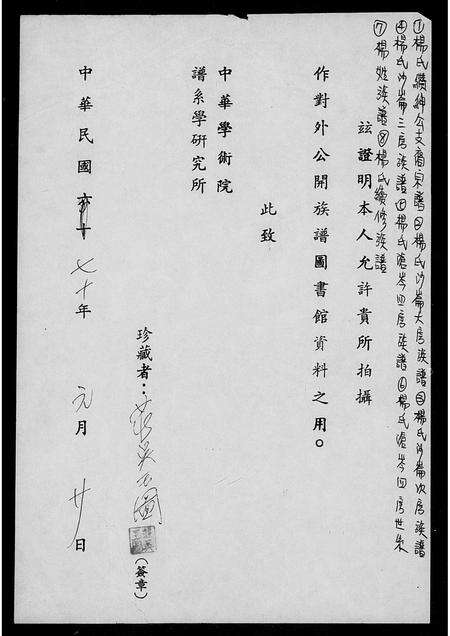 ①楊氏纘紳公支脈宗譜②楊氏沙崙大房族譜③楊氏沙崙次房族譜
④楊氏沙崙三房族譜⑤楊氏港岑四房族譜⑥楊氏港岑四房世系
⑦楊姓族譜⑧楊氏續修族譜
茲證明本人允許貴所拍攝
作對外公開族譜圖書館資料之用。
此致
中華學術院
譜系學研究所
珍藏者：
(簽章)
中華民國 七十年 元月 廿日